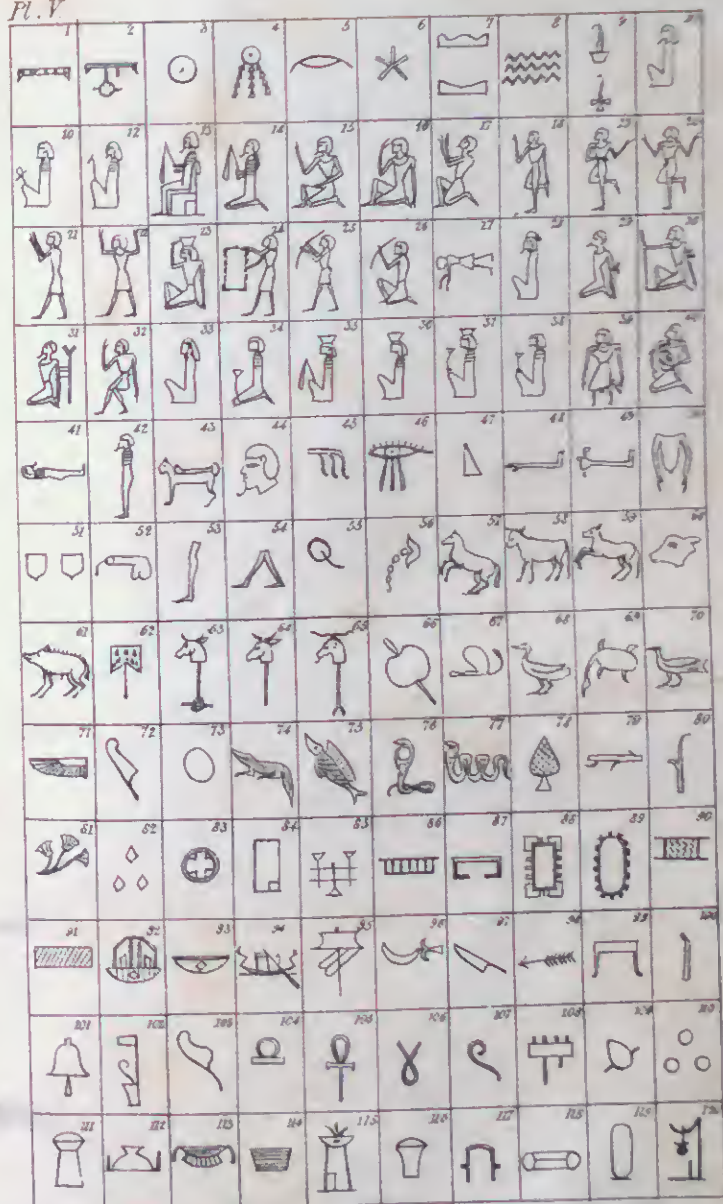 Pl. V
1 2 3 4 5 6 7 8 9
12 13 14 15 16 17 18 19 20
21 22 23 24 25 26 27 28 29 30
31 32 33 34 35 36 37 38 39 40
41 42 43 44 45 46 47 48 49 50
51 52 53 54 55 56 57 58 59 60
61 62 63 64 65 66 67 68 69 70
71 72 73 74 75 76 77 78 79 80
81 82 83 84 85 86 87 88 89 90
91 92 93 94 95 96 97 98 99 100
101 102 103 104 105 106 107 108 109 110
111 112 113 114 115 116 117 118 119 120